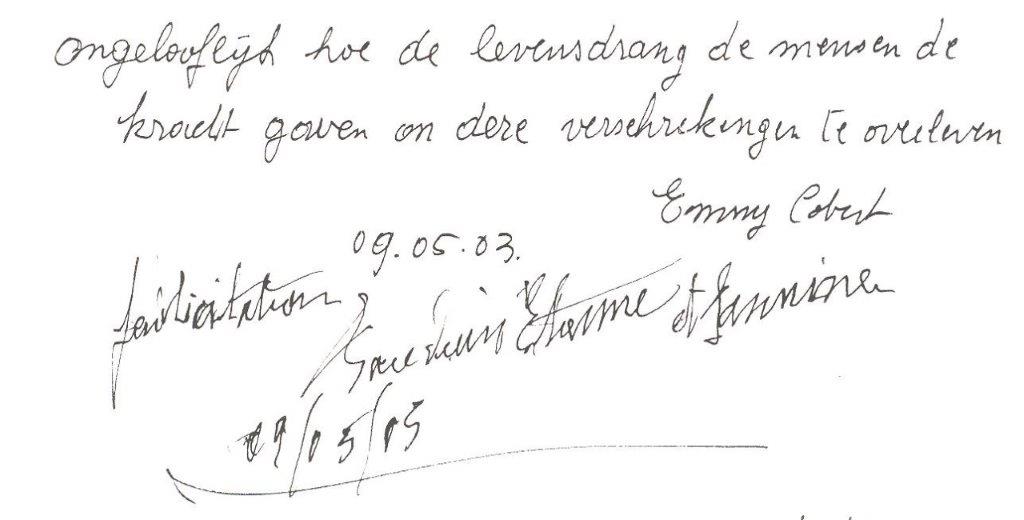 Ongelooflijk hoe de levensdrang de mensen de
kracht gaven om deze verschrikkingen te overleven
Emmy Cobert
09.05.03.
félicitation
Etienne et Jeannine
09/05/03